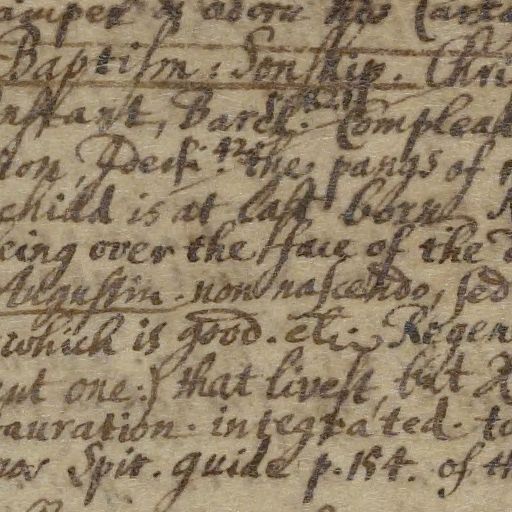 & adorn
Baptism: Sonship. Chri
nstant, Barck: Compleat
the pangs of
child is at last born
eing over the face of the
Augustin. non nascendo, sed
which is good. etc. Regen
ut one: that livest, but
auration. integrated. to
Spir. guide p. 154. of th